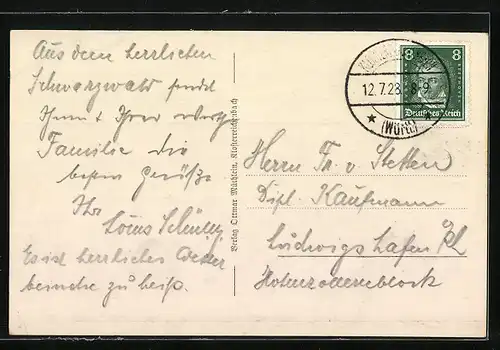 Aus dem herrlichen
Schwarzwald sendet
Ihnen & Ihrer werten
Familie die
besten Grüße
Ihr
Louis
Es ist herrliches Wetter
beinahe zu heiß.
Verlag Ottmar Müchlein, Klosterreichenbach
12.7.28. 8-9
(WÜRTT)
8 8
Deutsches Reich
Herrn Fr. v. Stetten
Dipl. Kaufmann
Ludwigshafen a/Rh
Hohenzollernblock